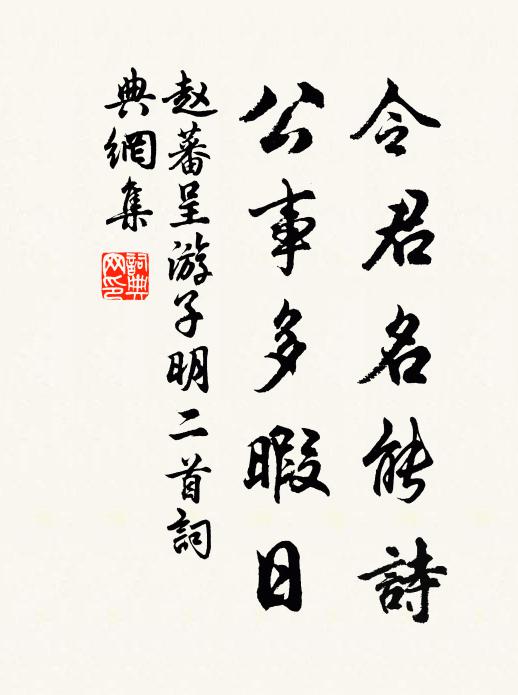 令君名能詩
公事多暇日
赵蕃呈游子明二首詞
典網集
詞典
网印